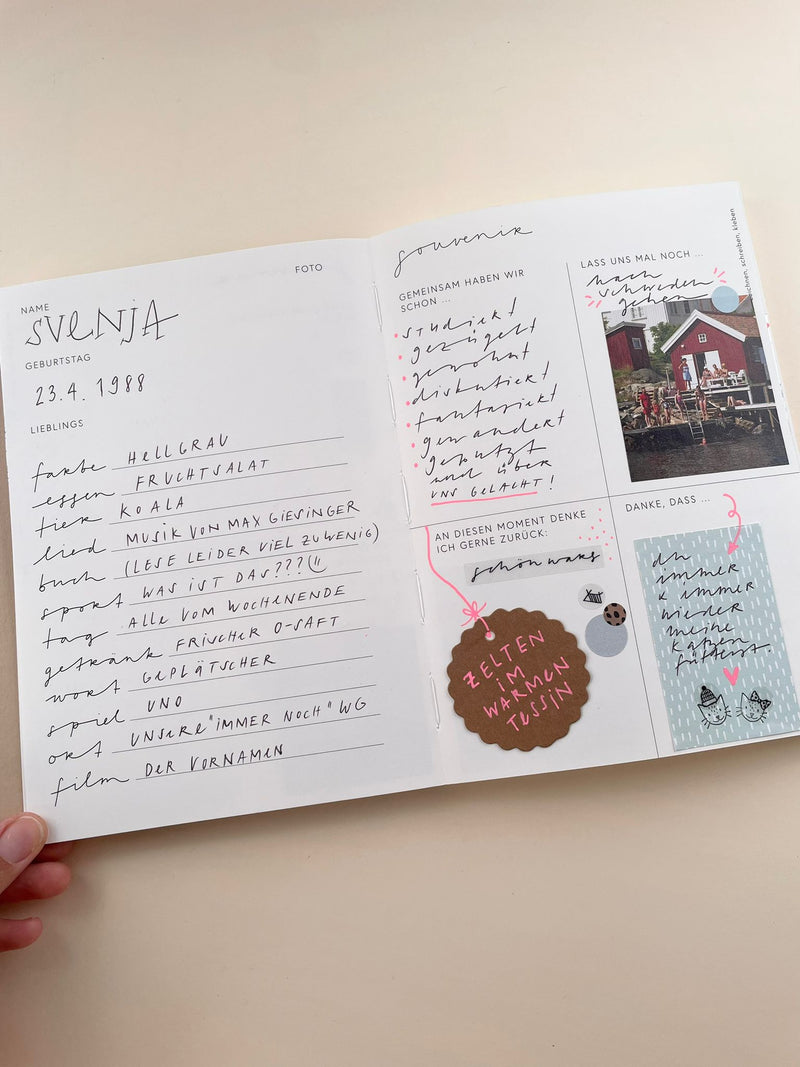 FOTO
NAME
SVENJA
GEBURTSTAG
23.4. 1988
LIEBLINGS
farbe HELLGRAU
essen FRUCHTSALAT
tier KOALA
lied MUSIK VON MAX GIESINGER
buch (LESE LEIDER VIEL ZU WENIG)
sport WAS IST DAS???
tag ALLE VOM WOCHENENDE
getränk FRISCHER O-SAFT
wort GEPLÄTSCHER
spiel UNO
ort UNSERE "IMMER NOCH" WG
film DER VORNAMEN
souvenir
GEMEINSAM HABEN WIR
SCHON ...
studiert
gezügelt
gewohnt
diskutiert
fantasiert
gewandert
geputzt
und über
UNS GELACHT!
LASS UNS MAL NOCH ...
nach
schweden
gehen
schreiben, kleben
AN DIESEN MOMENT DENKE
ICH GERNE ZURÜCK:
schön wars
ZELTEN
IM
WARMEN
TESSIN
DANKE, DASS ...
du
immer
& immer
wieder
meine
katzen
fütterst.